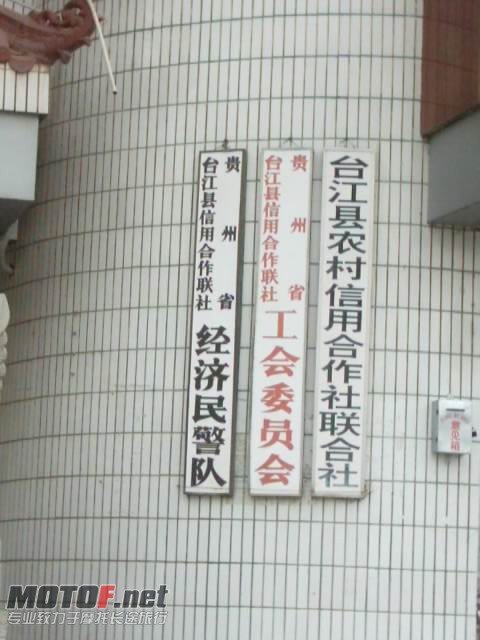 台江县农村信用合作社联合社
贵州省
台江县信用合作联社
工会委员会
贵州省
台江县信用合作联社
经济民警队
意见箱
MOTOF.net
专业致力于摩托长途旅行